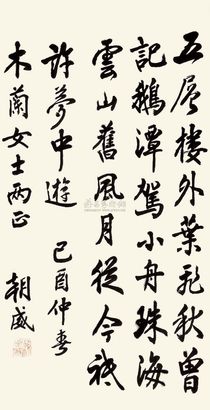 五層樓外葉飛秋曾
記鵝潭駕小舟珠海
雲山舊風月從今祗
許夢中遊 己酉仲春
木蘭女士兩正 朝威